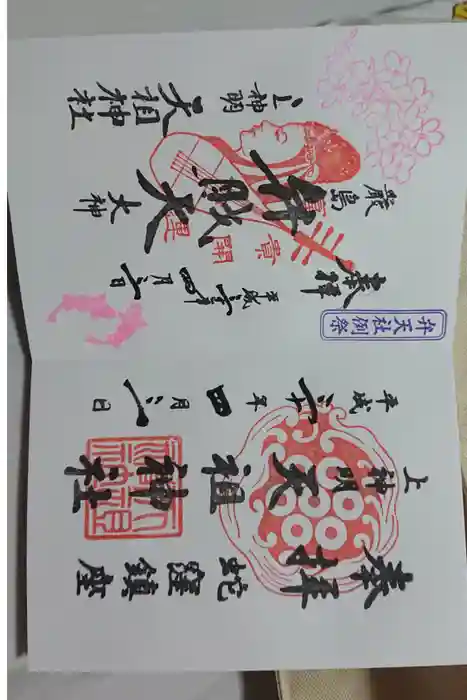 奉拝
弁天社例祭
厳島
弁財天
大神
富貴開運
上神明
天祖神社
平成三十一年四月一日
奉拝
上神明
天祖
神社
平成三十一年四月一日
蛇窪鎮座